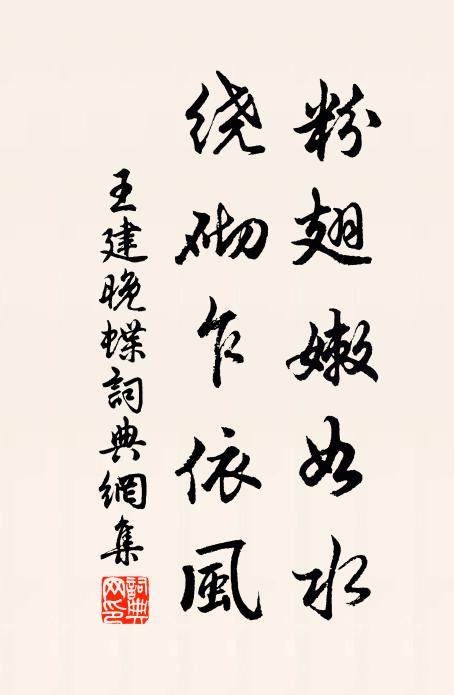 粉翅嫩如水
绕砌乍依風
王建晚蝶詞典網集
詞典网印